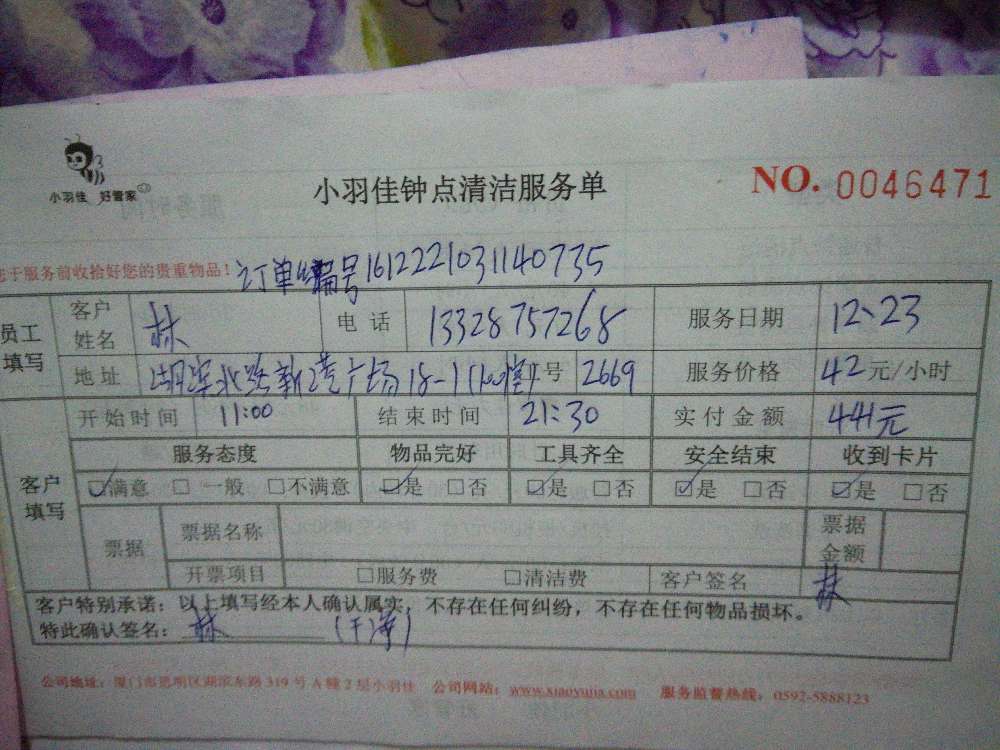 小羽佳 好管家
小羽佳钟点清洁服务单
NO. 0046471
于服务前收拾好您的贵重物品！ 订单编号1612221031140735
员工填写 客户姓名 林 电话 13328757268 服务日期 12、23
地址 湖滨北路新港广场18-1 号 2669 服务价格 42元/小时
客户填写 开始时间 11:00 结束时间 21:30 实付金额 441元
服务态度 物品完好 工具齐全 安全结束 收到卡片
☑满意 □一般 □不满意 ☑是 □否 ☑是 □否 ☑是 □否 ☑是 □否
票据 票据名称 票据金额
开票项目 □服务费 □清洁费 客户签名 林
客户特别承诺：以上填写经本人确认属实，不存在任何纠纷，不存在任何物品损坏。
特此确认签名：林 (干净)
公司地址：厦门市思明区湖滨东路319号A幢2层小羽佳 公司网站：www.xiaoyujia.com 服务监督热线：0592-5888123